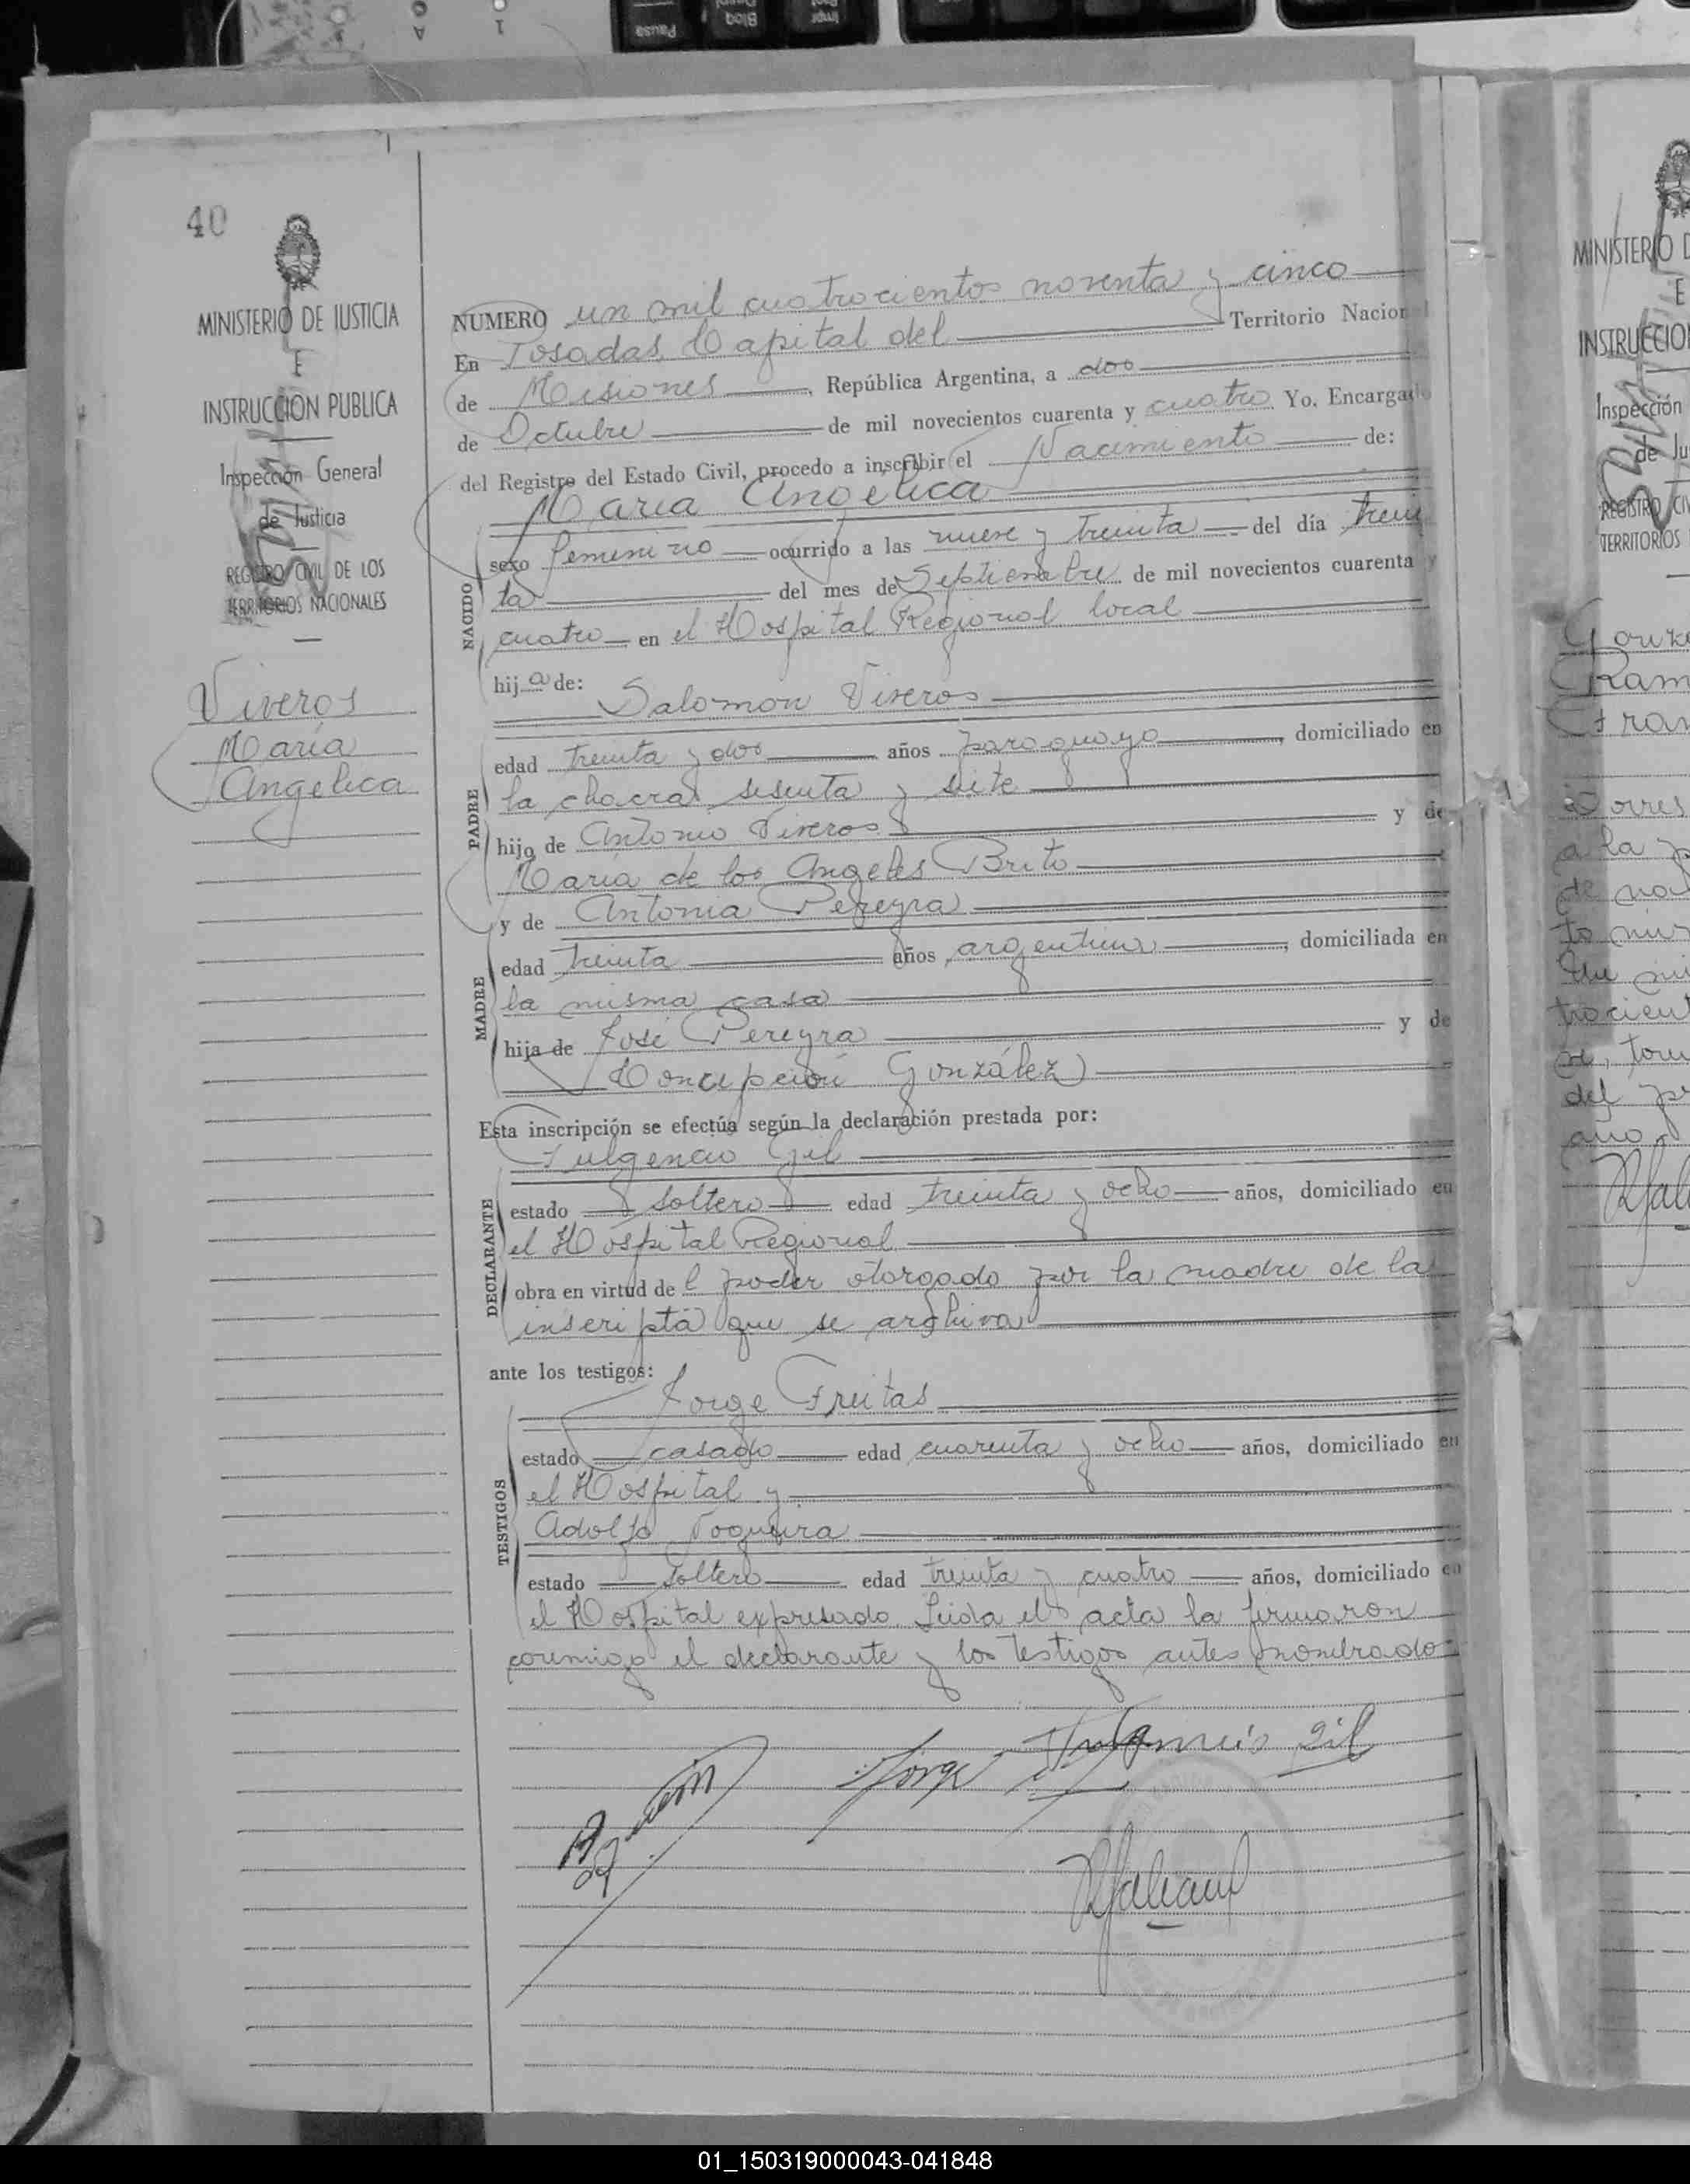 40
MINISTERIO DE JUSTICIA
E
INSTRUCCION PUBLICA
Inspección General
de Justicia
REGISTRO CIVIL DE LOS
TERRITORIOS NACIONALES
Viveros
María
Angélica
NUMERO un mil cuatrocientos noventa y cinco
En Posadas, Capital del Territorio Nacional
de Misiones, República Argentina, a dos
de Octubre de mil novecientos cuarenta y cuatro Yo, Encargado
del Registro del Estado Civil, procedo a inscribir el Nacimiento de:
María Angélica
NACIDO
sexo femenino ocurrido a las nueve y treinta del día trein
ta del mes de Septiembre de mil novecientos cuarenta y
cuatro en el Hospital Regional local
hija de:
Salomón Viveros
PADRE
edad treinta y dos años paraguayo, domiciliado en
la chacra sesenta y siete
hijo de Antonio Viveros y de
María de los Angeles Brito
y de Antonia Pereyra
MADRE
edad treinta años argentina, domiciliada en
la misma casa
hija de José Pereyra y de
Concepción González
Esta inscripción se efectúa según la declaración prestada por:
Fulgencio Gil
DECLARANTE
estado soltero edad treinta y ocho años, domiciliado en
el Hospital Regional
obra en virtud del poder otorgado por la madre de la
inscripta que se archiva
ante los testigos:
Jorge Freitas
TESTIGOS
estado casado edad cuarenta y ocho años, domiciliado en
el Hospital y
Adolfo Noguera
estado soltero edad treinta y cuatro años, domiciliado en
el Hospital expresado. Leida el acta la firmaron
conmigo el declarante y los testigos antes nombrados
Jorge
Gil
01_150319000043-041848